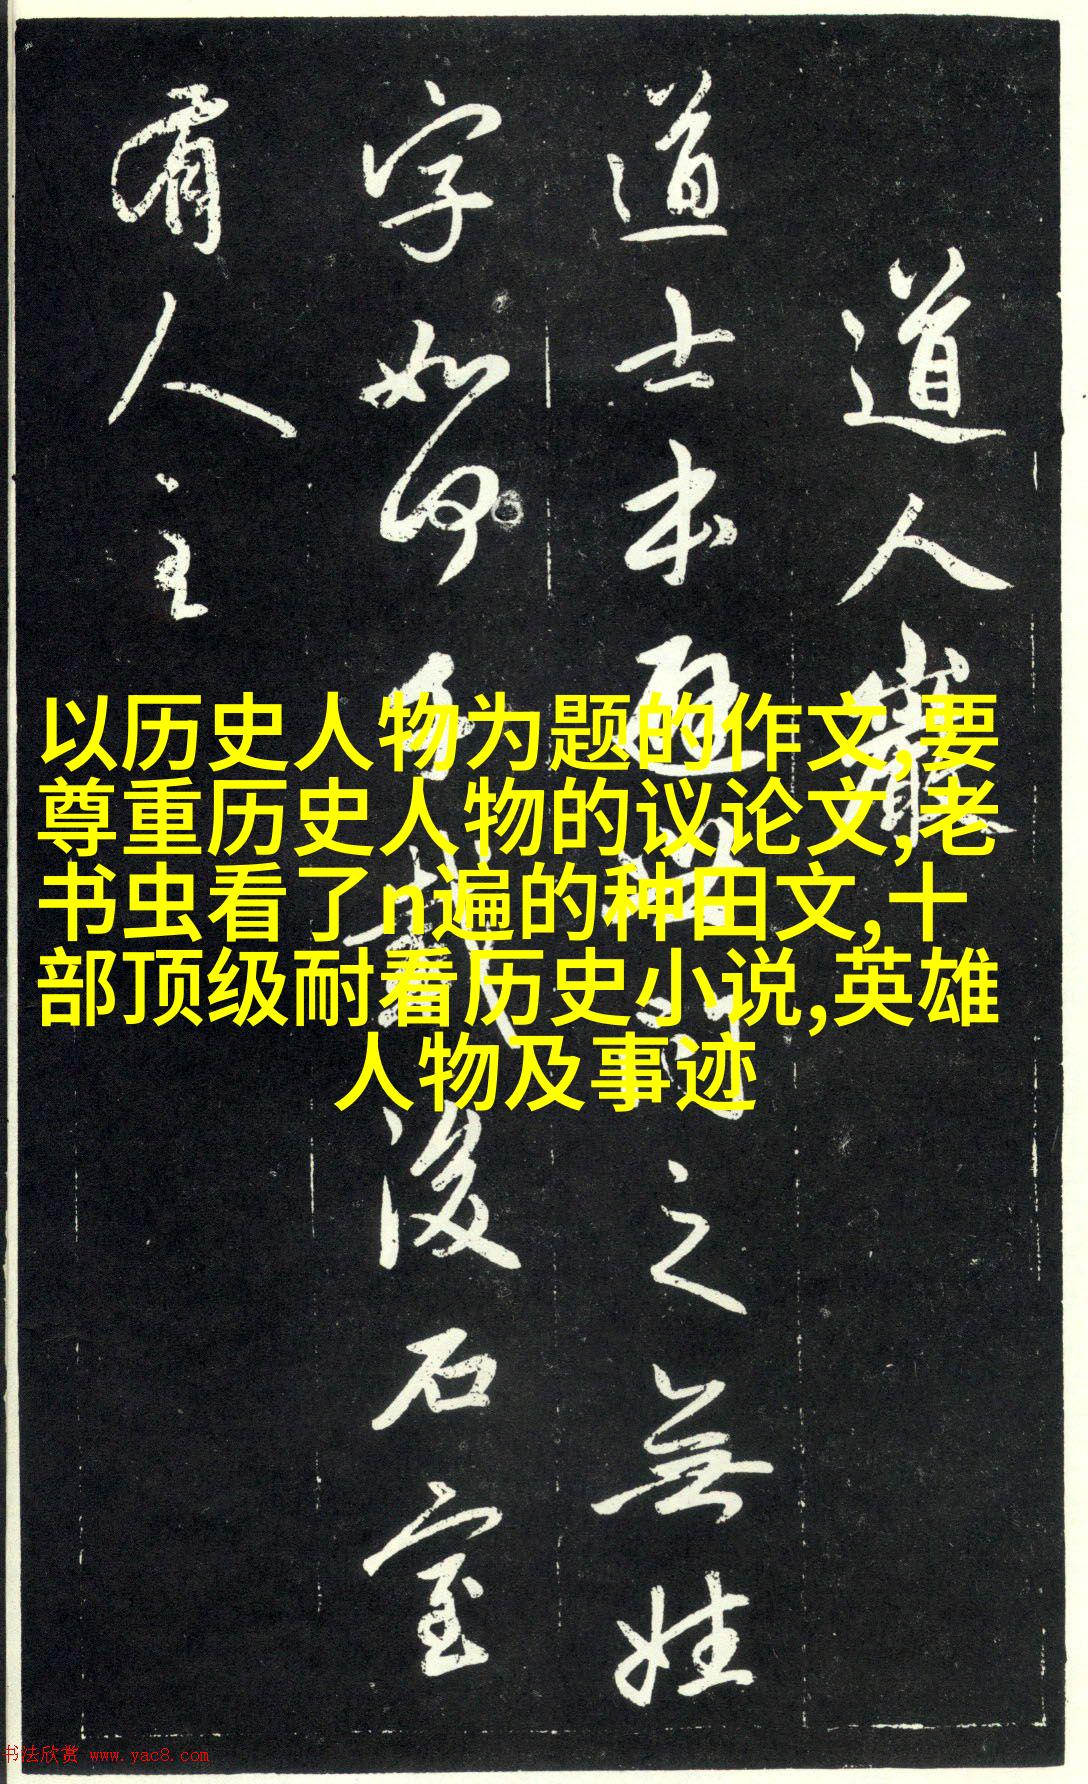 道人巖
道士本
之無姓
字如何
後石室
有人主
以历史人物为题的作文,要
尊重历史人物的议论文,老
书虫看了n遍的种田文,十
部顶级耐看历史小说,英雄
人物及事迹
书法欣赏 www.yac8.com